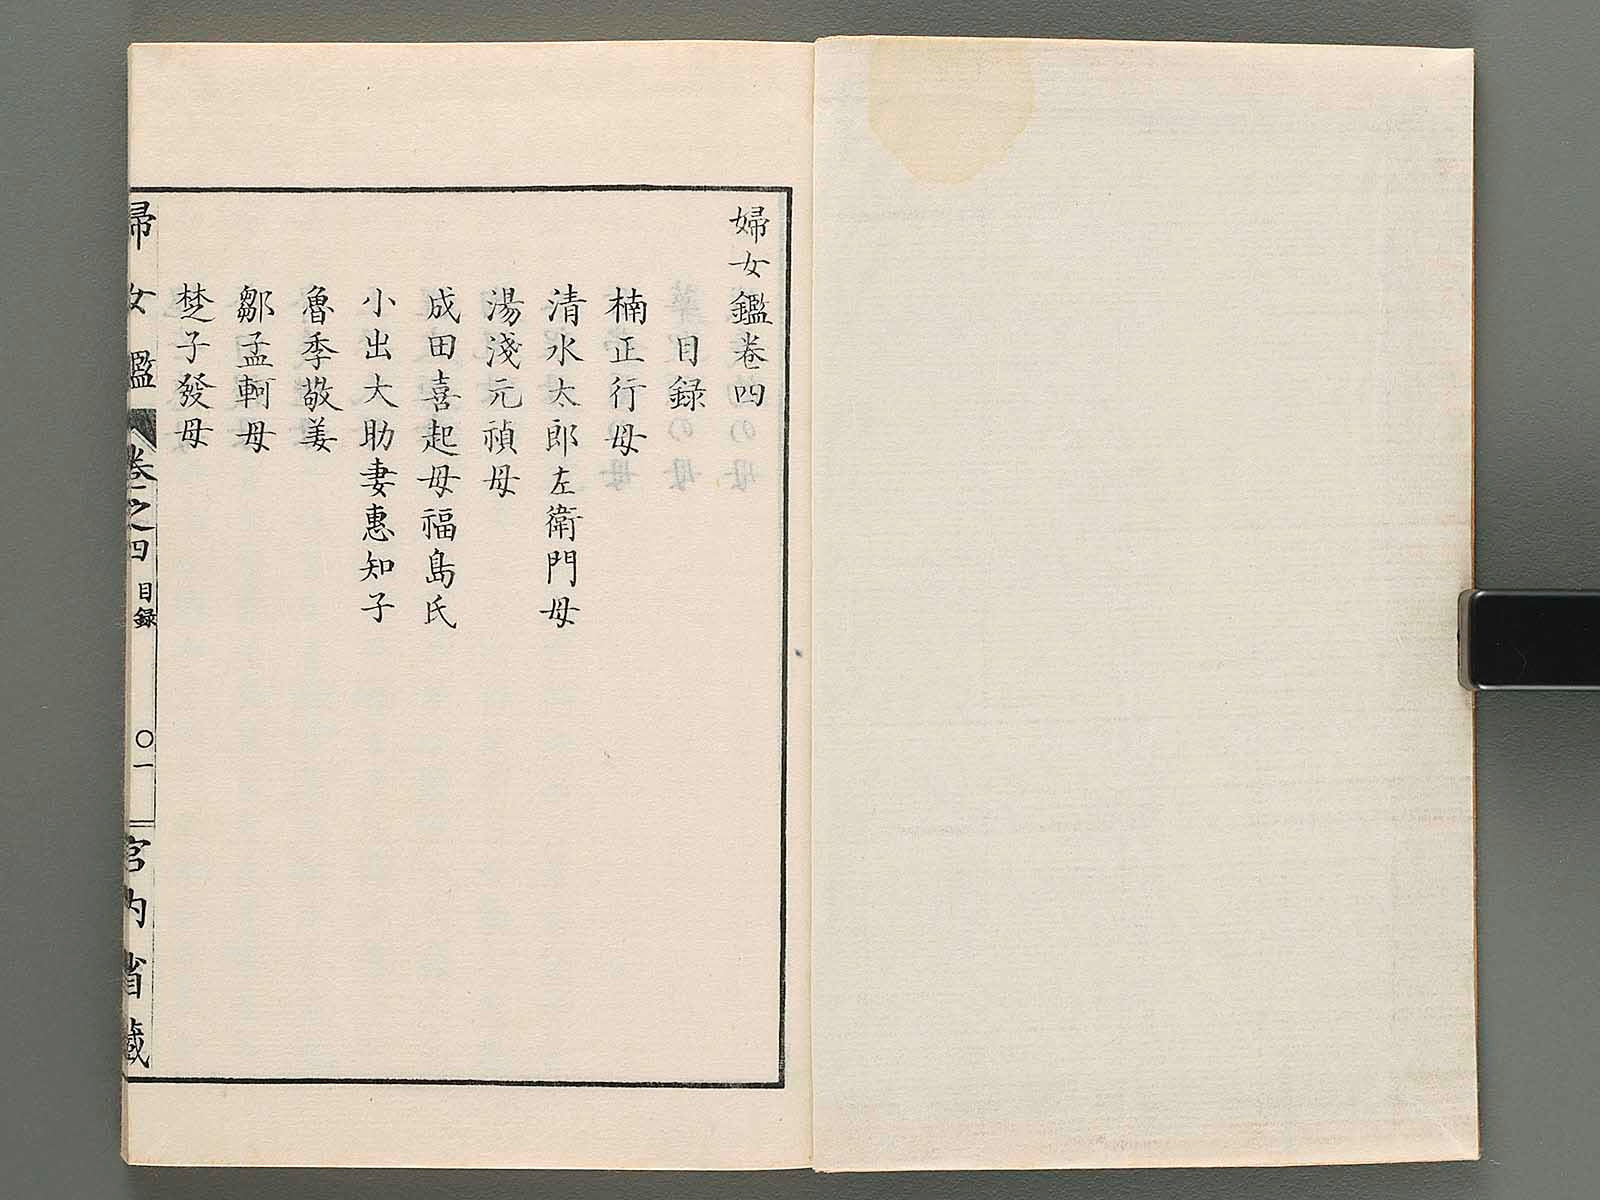 婦女鑑卷四
目錄
楠正行母
清水太郎左衛門母
湯淺元禎母
成田喜起母福島氏
小出大助妻惠知子
魯季敬姜
鄒孟軻母
楚子發母
婦女鑑 卷之四 目錄 〇一 宮內省藏